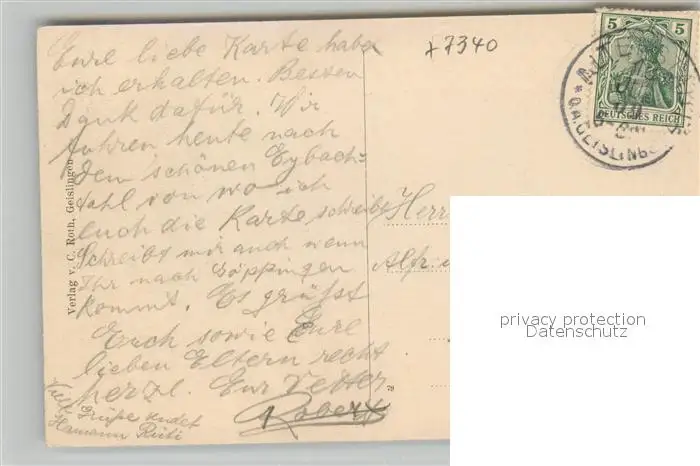 Eure liebe Karte habe
ich erhalten. Besten
Dank dafür. Wir
fahren heute nach
dem schönen Eybach-
tahl von wo ich
euch die Karte schreibe
Schreibt mir auch wenn
Ihr nach Göppingen
kommt. Es grüßt
Euch sowie Eure
lieben Eltern recht
herzl. Eur Vetter
Robert
Viele
Grüße sendet
Hermann
+7340
5 5
DEUTSCHES REICH
O.A. GEISLINGEN
Herr
Alfr.
Verlag v. C. Roth, Geislingen
78
privacy protection
Datenschutz